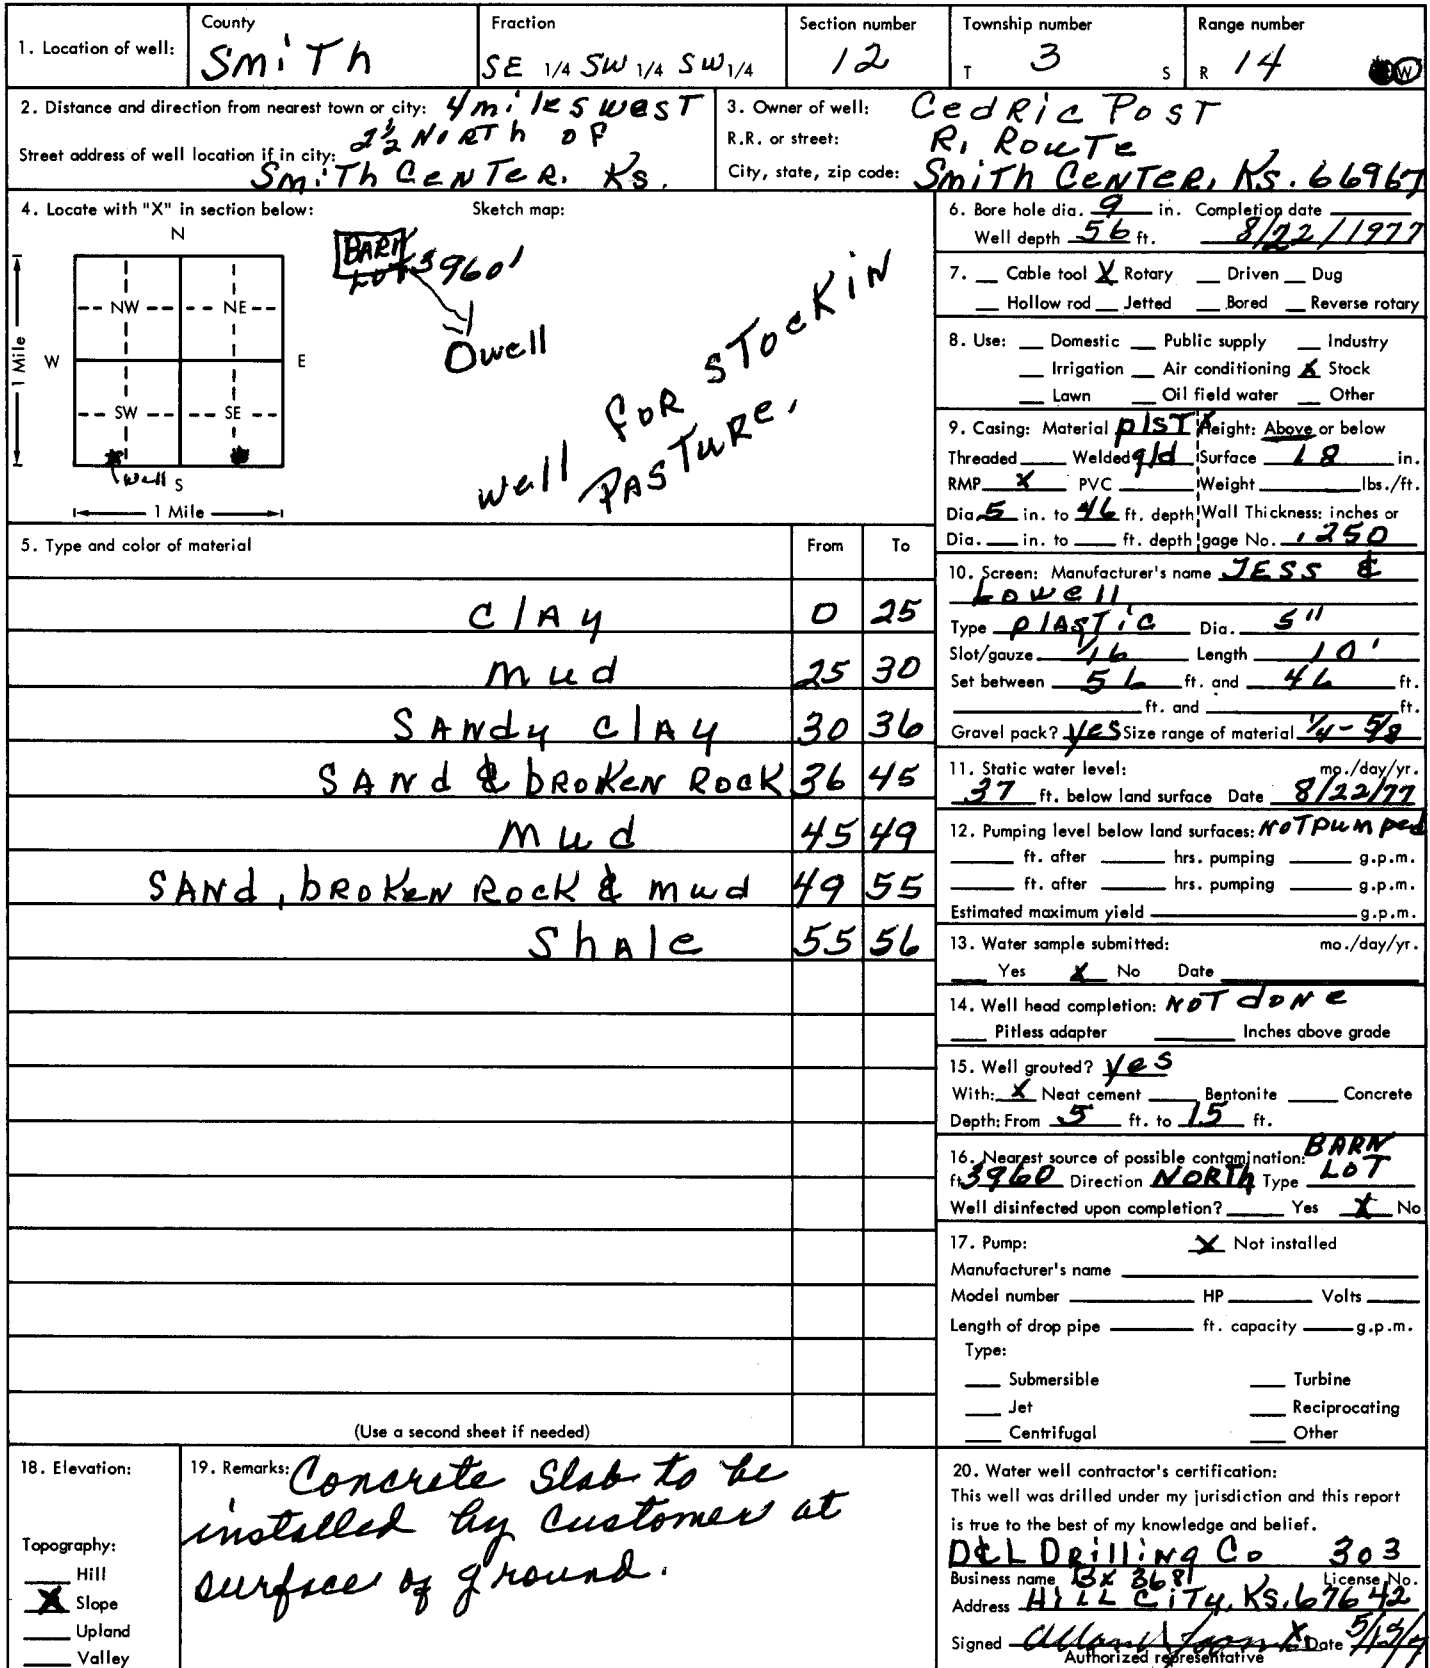 1. Location of well: County Fraction Section number Township number Range number
Smith SE 1/4 SW 1/4 SW 1/4 12 T 3 S R 14 W
2. Distance and direction from nearest town or city: 4 miles west
2½ North of
Street address of well location if in city:
Smith Center, Ks.
3. Owner of well: Cedric Post
R.R. or street: R. Route
City, state, zip code: Smith Center, Ks. 66967
4. Locate with "X" in section below: Sketch map:
N
NW NE
W E
SW SE
well S
1 Mile
1 Mile
BARN
LOT 3960'
well
well FOR STOCK IN
PASTURE.
5. Type and color of material From To
Clay 0 25
mud 25 30
SANdy clAy 30 36
SANd & bROKEN ROCK 36 45
mud 45 49
SANd, bROKEN ROCK & mud 49 55
ShAle 55 56
(Use a second sheet if needed)
6. Bore hole dia. 9 in. Completion date
Well depth 56 ft. 8/22/1977
7. Cable tool X Rotary Driven Dug
Hollow rod Jetted Bored Reverse rotary
8. Use: Domestic Public supply Industry
Irrigation Air conditioning X Stock
Lawn Oil field water Other
9. Casing: Material plst Height: Above or below
Threaded Welded gld Surface 18 in.
RMP X PVC Weight lbs./ft.
Dia. 5 in. to 46 ft. depth Wall Thickness: inches or
Dia. in. to ft. depth gage No. .250
10. Screen: Manufacturer's name JESS &
Lowell
Type plastic Dia. 5"
Slot/gauze 1/16 Length 10'
Set between 56 ft. and 46 ft.
ft. and ft.
Gravel pack? yes Size range of material 1/4 - 5/8
11. Static water level: mo./day/yr.
37 ft. below land surface Date 8/22/77
12. Pumping level below land surfaces: not pumped
ft. after hrs. pumping g.p.m.
ft. after hrs. pumping g.p.m.
Estimated maximum yield g.p.m.
13. Water sample submitted: mo./day/yr.
Yes X No Date
14. Well head completion: NOT dONe
Pitless adapter Inches above grade
15. Well grouted? yes
With: X Neat cement Bentonite Concrete
Depth: From 5 ft. to 15 ft.
16. Nearest source of possible contamination: BARN
ft. 3960 Direction North Type LOT
Well disinfected upon completion? Yes X No
17. Pump: X Not installed
Manufacturer's name
Model number HP Volts
Length of drop pipe ft. capacity g.p.m.
Type:
Submersible Turbine
Jet Reciprocating
Centrifugal Other
18. Elevation:
Topography:
Hill
X Slope
Upland
Valley
19. Remarks: Concrete Slab to be
installed by customer at
surface of ground.
20. Water well contractor's certification:
This well was drilled under my jurisdiction and this report
is true to the best of my knowledge and belief.
D&L Drilling Co 303
Business name Bx 368 License No.
Address Hill City, Ks. 67642
Signed Date
Authorized representative